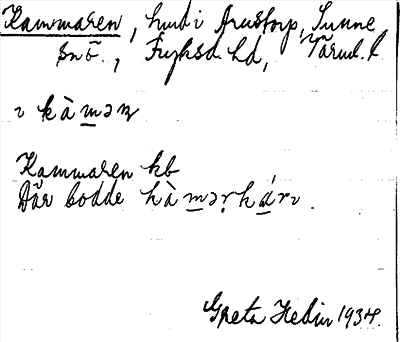 Kammaren, hmd i Arnstorp, Sunne
sn ö., Fryksd. hd, Värml. l.
ı kàməɳ
Kammaren kb
Där bodde kàməɽkárı.
Greta Hedin 1934.